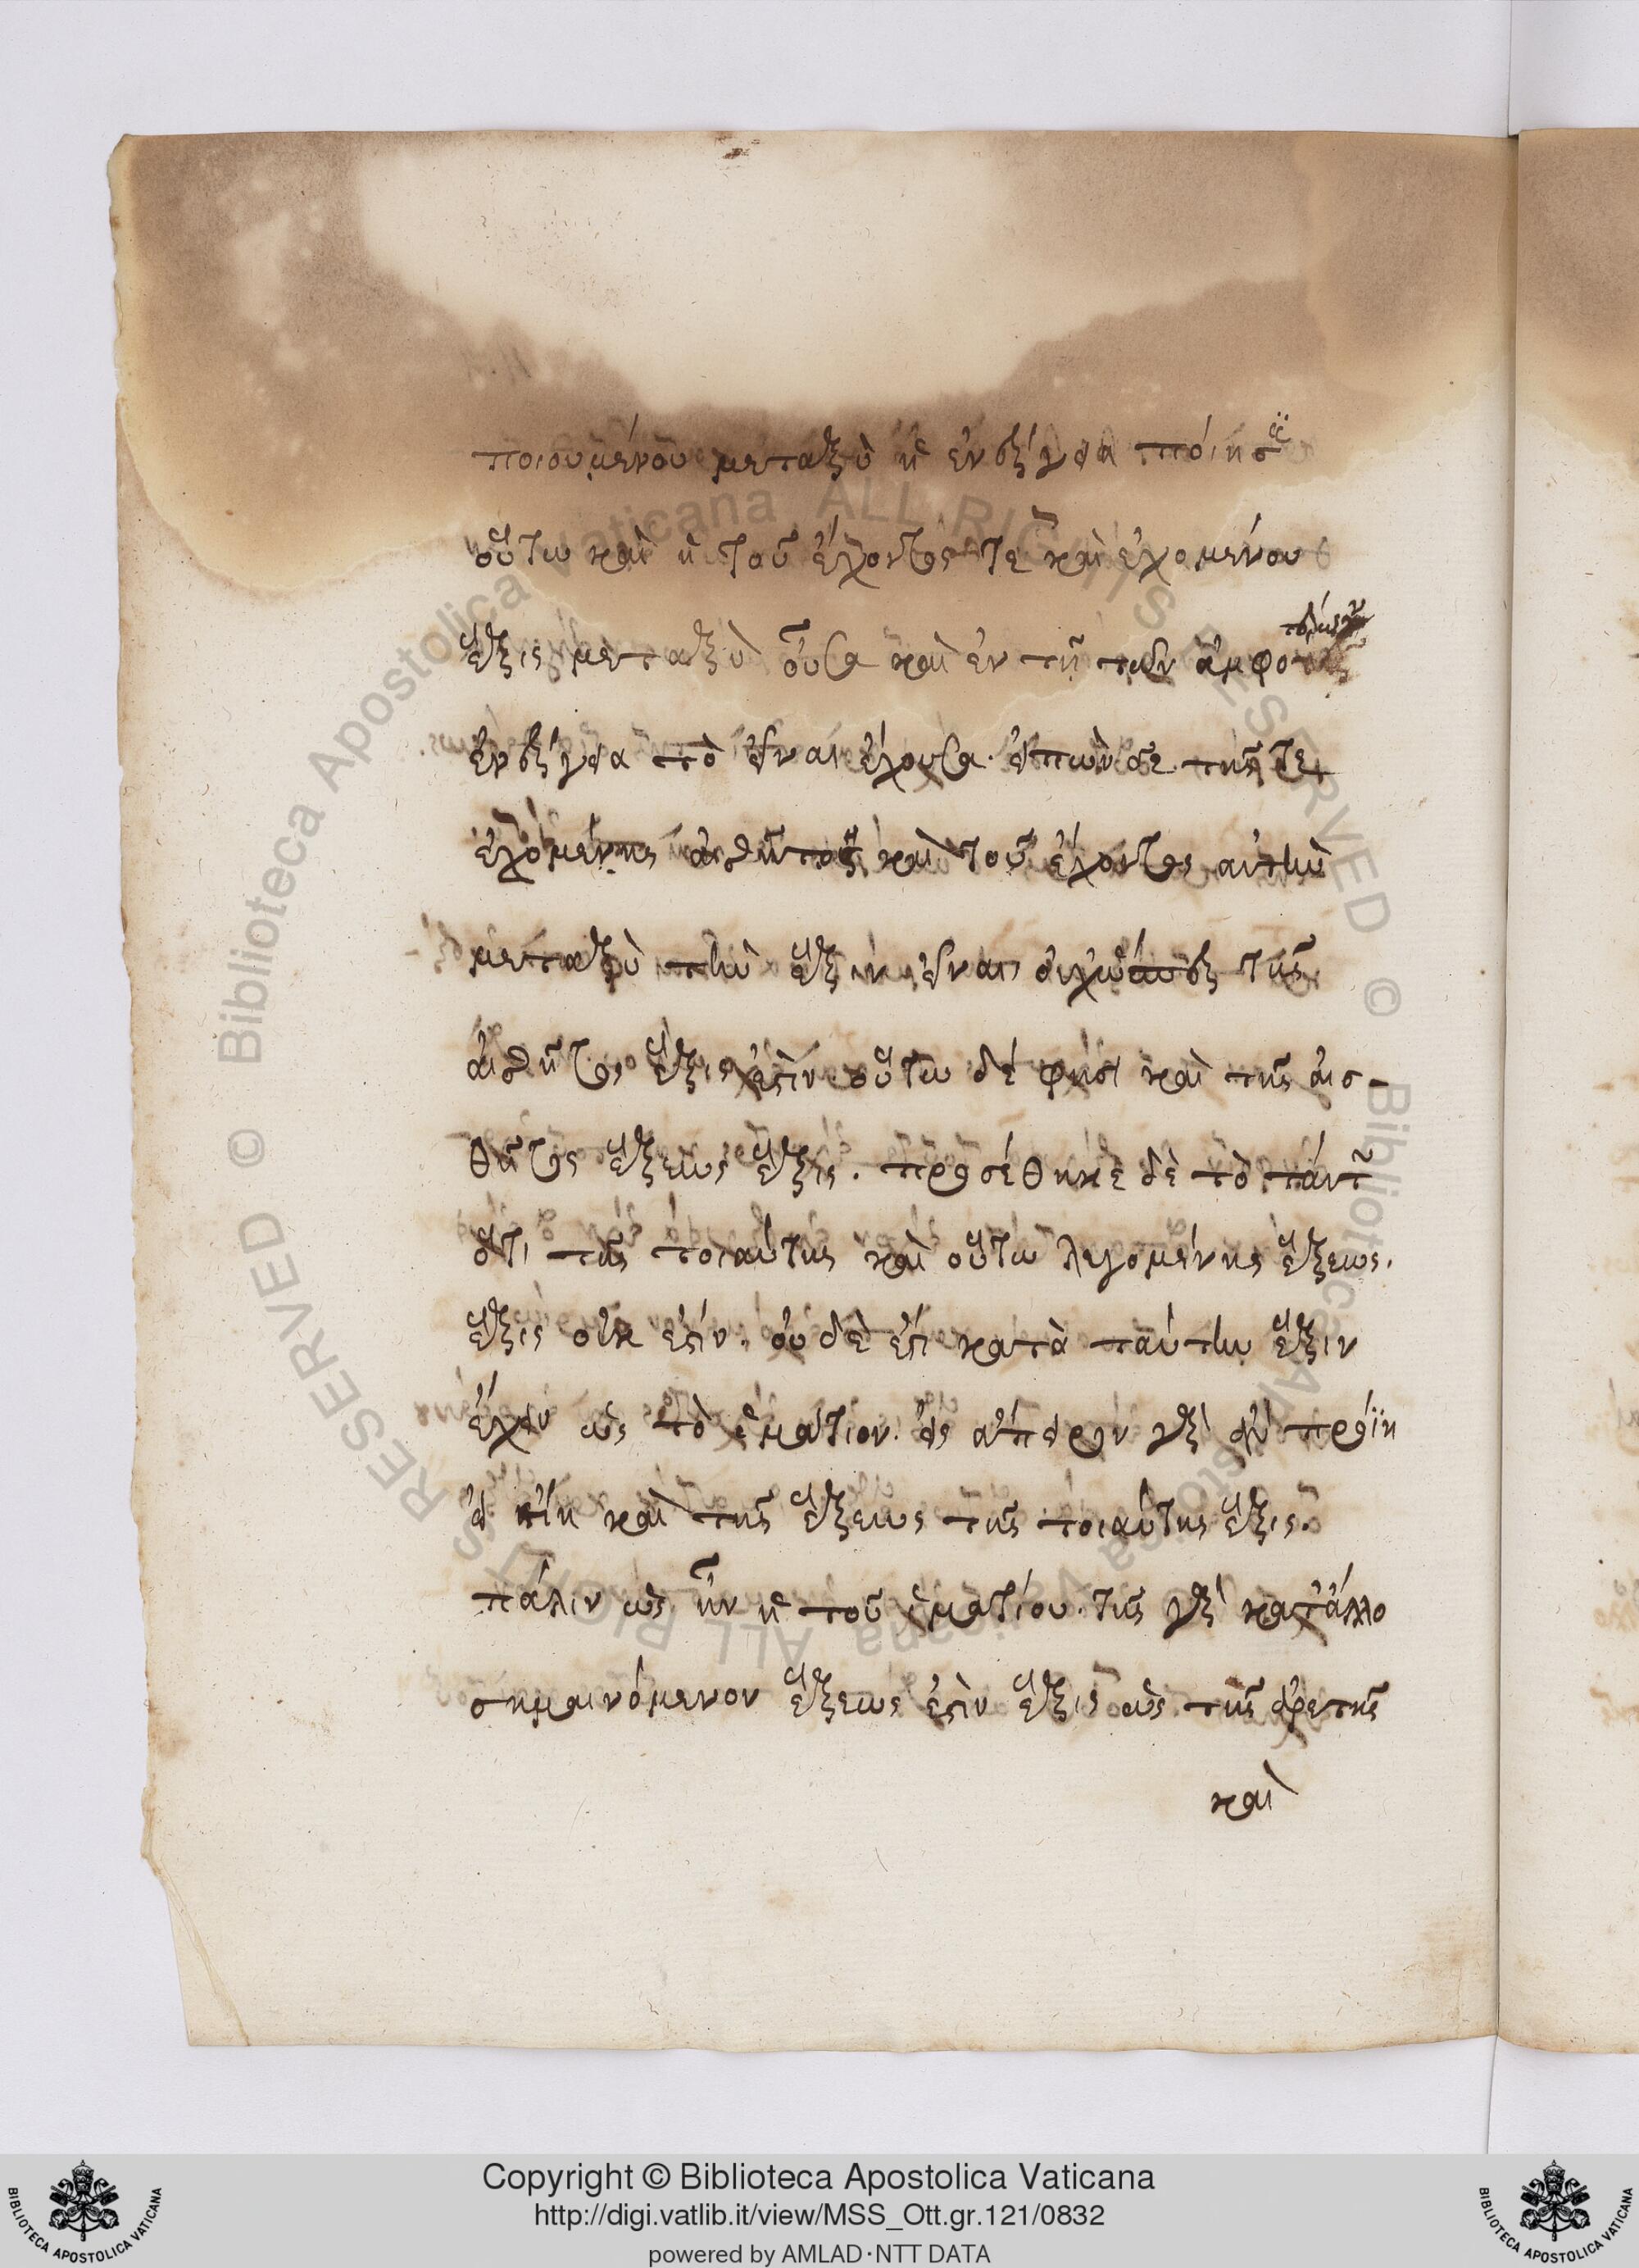 ποιουμένου μεταξὺ ἡ ἐνέργεια ποίησις
οὕτω καὶ ἡ τοῦ ἔχοντός τε καὶ ἐχομένου
ἕξις μεταξὺ οὖσα καὶ ἐν τῇ τῶν ἀμφοτέρων
ἐνεργεία τὸ εἶναι ἔχουσα. εἰπὼν δὲ τῆς τε
ἐχομένης ἐσθῆτος καὶ τοῦ ἔχοντος αὐτὴν
μεταξὺ τὴν ἕξιν εἶναι, τῆς
ἐσθῆτος ἕξις ἐστὶν οὕτω δέ φησι καὶ τῆς αἰσ-
θῆτος ἕξεως ἕξις. προσέθηκε δὲ τὸ
ὅτι τῆς τοιαύτης καὶ οὕτω λεγομένης ἕξεως.
ἕξις οὐκ ἐστίν. οὐδὲ ἔστι κατὰ ταύτην ἕξιν
ἔχειν ὡς τὸ ἱμάτιον. εἰς ἄπειρον γὰρ ἂν προΐη
εἰ εἴη καὶ τῆς ἕξεως τῆς τοιαύτης ἕξις.
πάλιν ὡς ἦν ἡ τοῦ ἱματίου. τῆς γὰρ κατ' ἄλλο
σημαινόμενον ἕξεως ἐστὶν ἕξις ὡς τῆς ἀρετῆς
καὶ
Copyright © Biblioteca Apostolica Vaticana
http://digi.vatlib.it/view/MSS_Ott.gr.121/0832
powered by AMLAD·NTT DATA
BIBLIOTECA APOSTOLICA VATICANA
BIBLIOTECA APOSTOLICA VATICANA
© Biblioteca Apostolica Vaticana ALL RIGHTS RESERVED
© Biblioteca Apostolica Vaticana ALL RIGHTS RESERVED